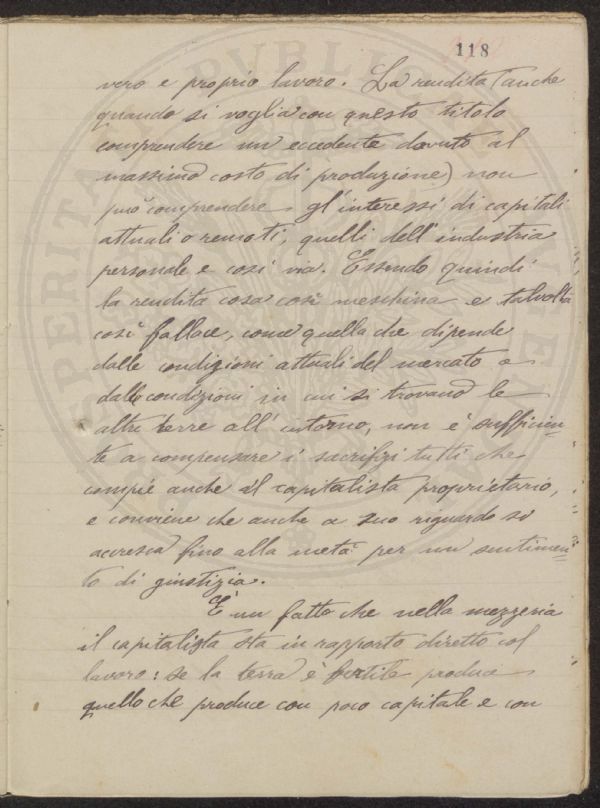 118
vero e proprio lavoro. La rendita (anche
quando si voglia con questo titolo
comprendere un eccedente dovuto al
massimo costo di produzione) non
può comprendere gl'interessi di capitali
attuali o remoti, quelli dell'industria
personale e così via. Essendo quindi
la rendita cosa così meschina e talvolta
così fallace, come quella che dipende
dalle condizioni attuali del mercato e
dalle condizioni in cui si trovano le
altre terre all'intorno, non è sufficien-
te a compensare i sacrifizi tutti che
compie anche il capitalista proprietario,
e conviene che anche a suo riguardo si
accresca fino alla metà per un sentimen-
to di giustizia.
È un fatto che nella mezzeria
il capitalista sta in rapporto diretto col
lavoro: se la terra è fertile produce
quello che produce con poco capitale e con